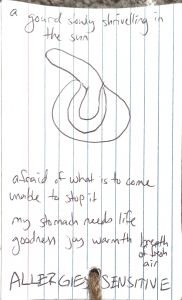 a gourd slowly shrivelling in
the sun
afraid of what is to come
unable to stop it
my stomach needs life
goodness joy warmth breath
of fresh
air
ALLERGIES SENSITIVE